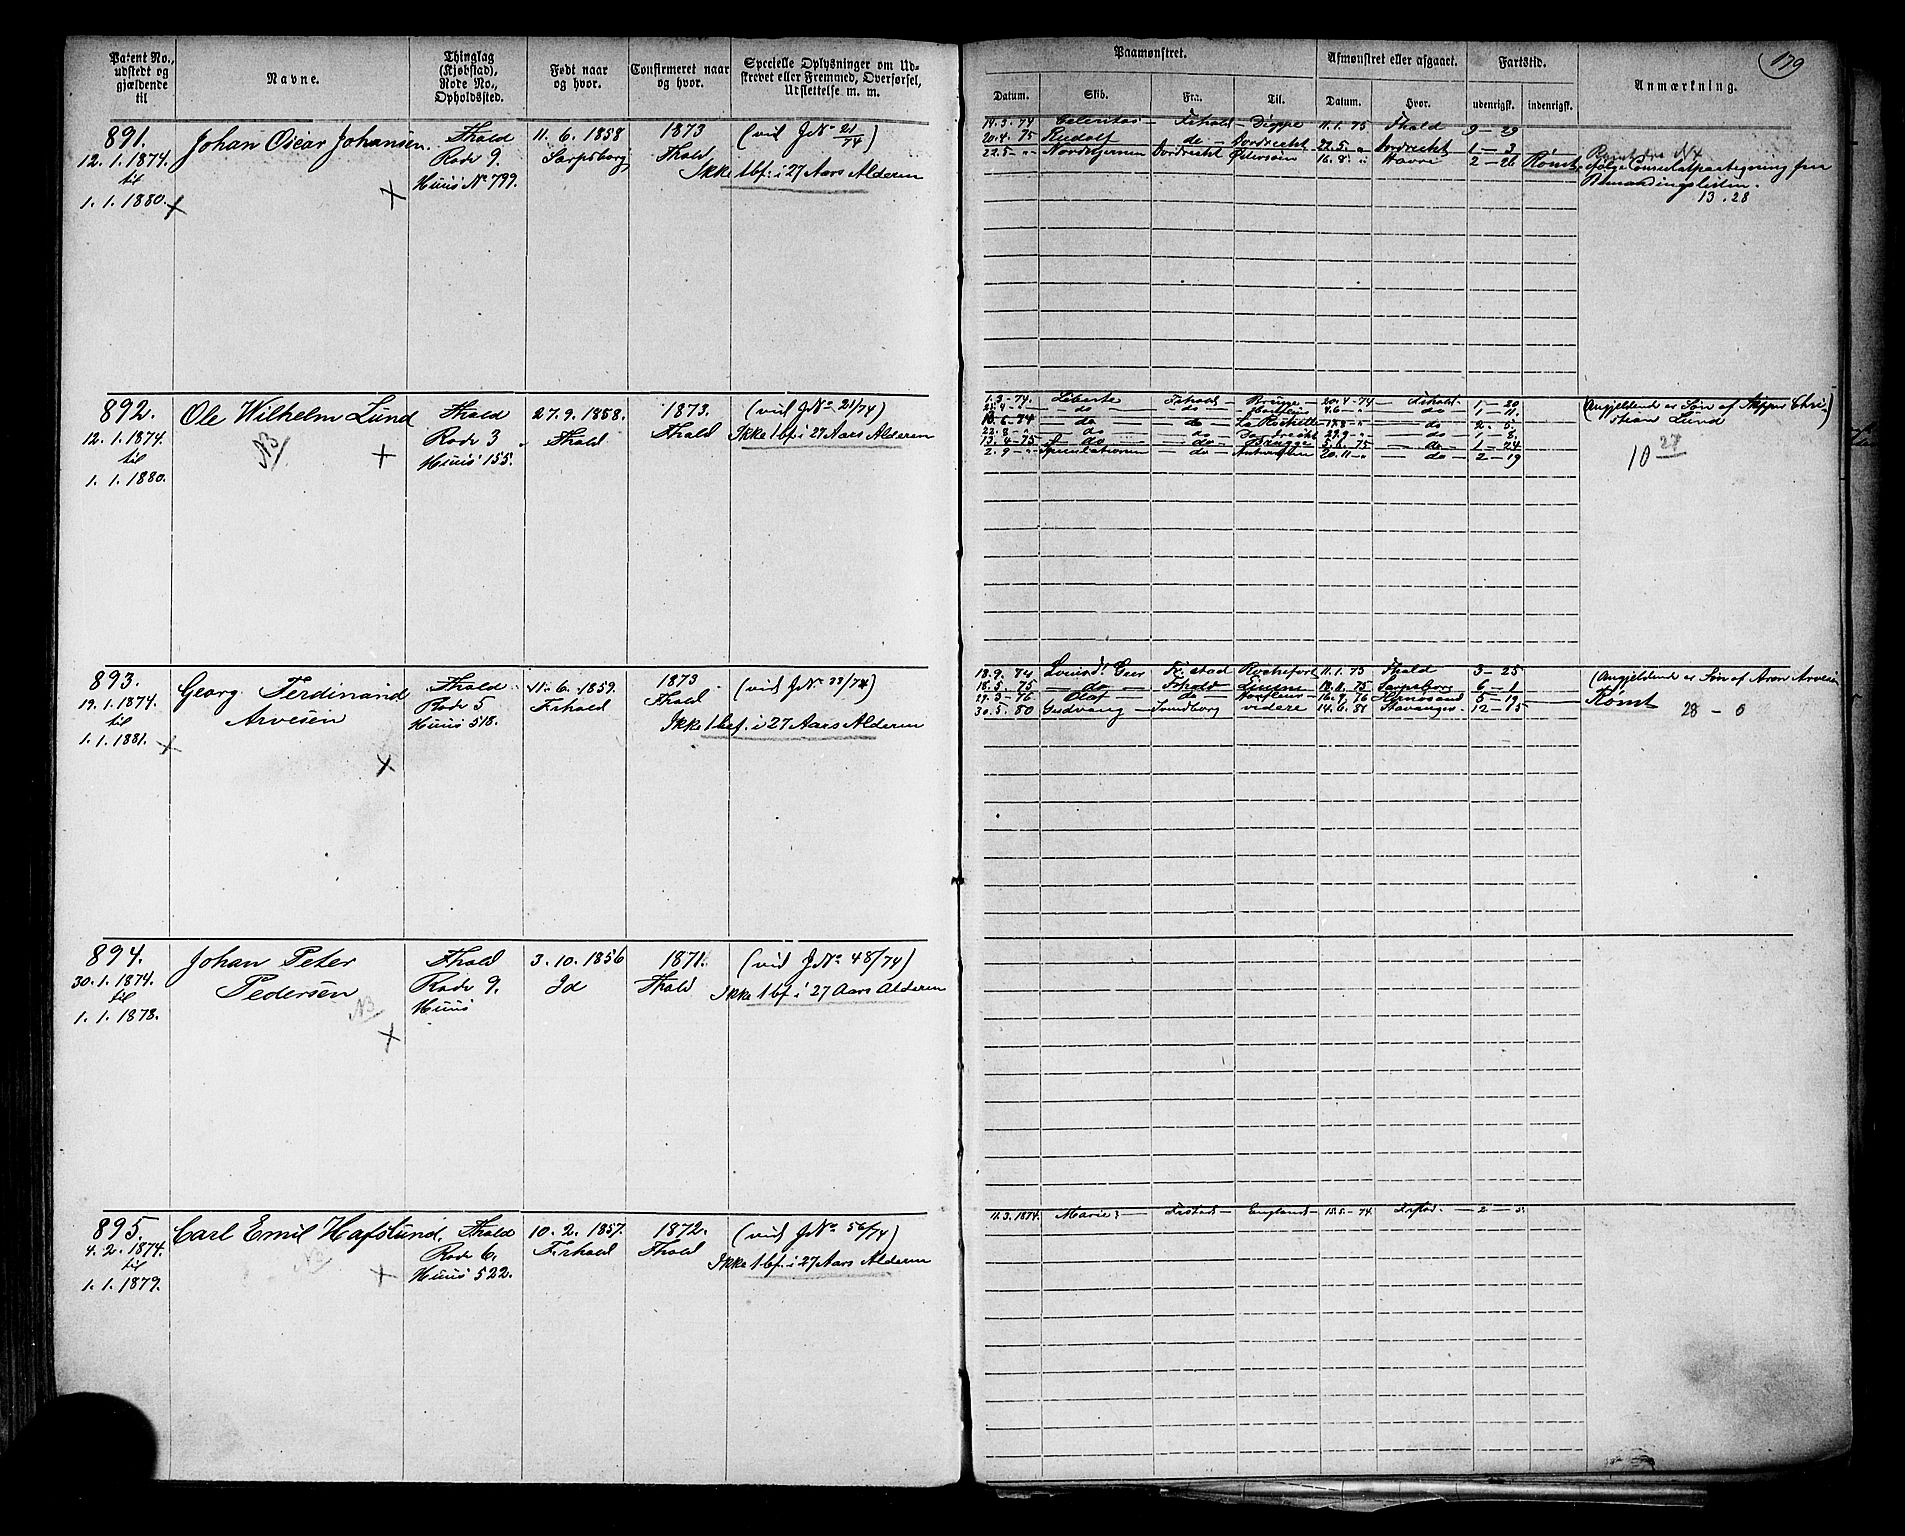 Patent No., udstedt og gjældende til
Navne.
Thinglag (Kjøbstad), Rode No., Opholdssted.
Født naar og hvor.
Confirmeret naar og hvor.
Specielle Oplysninger om Udskrevet eller Fremmed, Overførsel, Udslettelse m. m.
Paamønstret.
Afmønstret eller afgaaet.
Fartstid.
Anmærkning.
179
Datum.
Skib.
Fra.
Til.
Datum.
Hvor.
udenrigsk.
indenrigsk.
891.
12. 1. 1874.
til
1. 1. 1880.
Johan Oscar Johansen.
Fhald
Rode 9.
Huus No 799.
11. 6. 1858
Sarpsborg
1873
Fhald
(vid JNo 21/74)
Ikke 1 bf. i 27 Aars Alderen
14. 3. 74 Celeritas — Frhald — Dieppe 11. 1. 75 Fhald 9 — 29
20. 4. 75 Rudolf — do — Dordrecht 22. 5. " Dordrecht 1 — 3
22. 5 — " Nordstjernen Dordrecht 16. 8. " Havre 2 — 26 Rømt
ifølge Consulatpaategning paa
Bemandingslisten.
13. 28
892.
12. 1. 1874.
til
1. 1. 1880.
Ole Wilhelm Lund
NB
Fhald
Rode 3
Huus 155.
27. 9. 1858.
Fhald
1873.
Fhald
(vid JNo 21/74)
Ikke 1 bf. i 27 Aars Alderen
1. 3. 74. Liberte Frhald Brügge 20. 4 - 74 Frhald. 1 — 20
do — do — 4. 6 - " do 1 — 11.
10. 6 - 74 do — do La Rochelle do 2. 5.
22. 8 - " do do Dordrecht 29. 9 - " do 1 — 8.
13. 4 - 75 do — do Brügge 5. 6. 75 do 1 — 24
2. 9 - " Speculationen — do Antwerpen 20. 11 - " do 2 — 19
(Angjeldende er Søn af Skipper Chri-
stian Lund)
10 27
893.
19. 1. 1874.
til
1. 1. 1881.
Georg Ferdinand
Arvesen
Fhald
Rode 5
Huus 518.
11. 6. 1859.
Frhald
1873
Fhald
(vid JNo 33/74)
Ikke 1 bef. i 27 Aars Alderen
18. 9. 74 Frstad Rochefort 11. 1. 75 Fhald 3 — 25
18. 5. 75 — do — Frhald 75 Sarpsborg 6 — 1
12. 3 - 76 Olaf — do Honfleur 16. 9 76 Hernosand 5 — 19
30. 5. 80 Gudvang — Sundborg videre 14. 6. 81 Stavanger. 12 — 15
(Angjeldende er Søn af Aron Arvesen
Rømt 28 — 0
894.
30. 1. 1874.
til
1. 1. 1878.
Johan Peter
Pedersen
NB
Fhald
Rode 9.
Huus
3. 10. 1856
Id
1871.
Fhald
(vid JNo 48/74)
Ikke 1 bf. i 27 Aars Alderen
895.
4. 2. 1874.
til
1. 1. 1879.
Carl Emil Hafslund.
NB
Fhald
Rode 6.
Huus 522.
10. 2. 1857.
Frhald
1872.
Fhald
(vid JNo 56/74)
Ikke 1 bf. i 27 Aars Alderen
11. 3. 1874. Marie — Frstad — England — 15. 5 - 74. Frstad — 2 — 5.